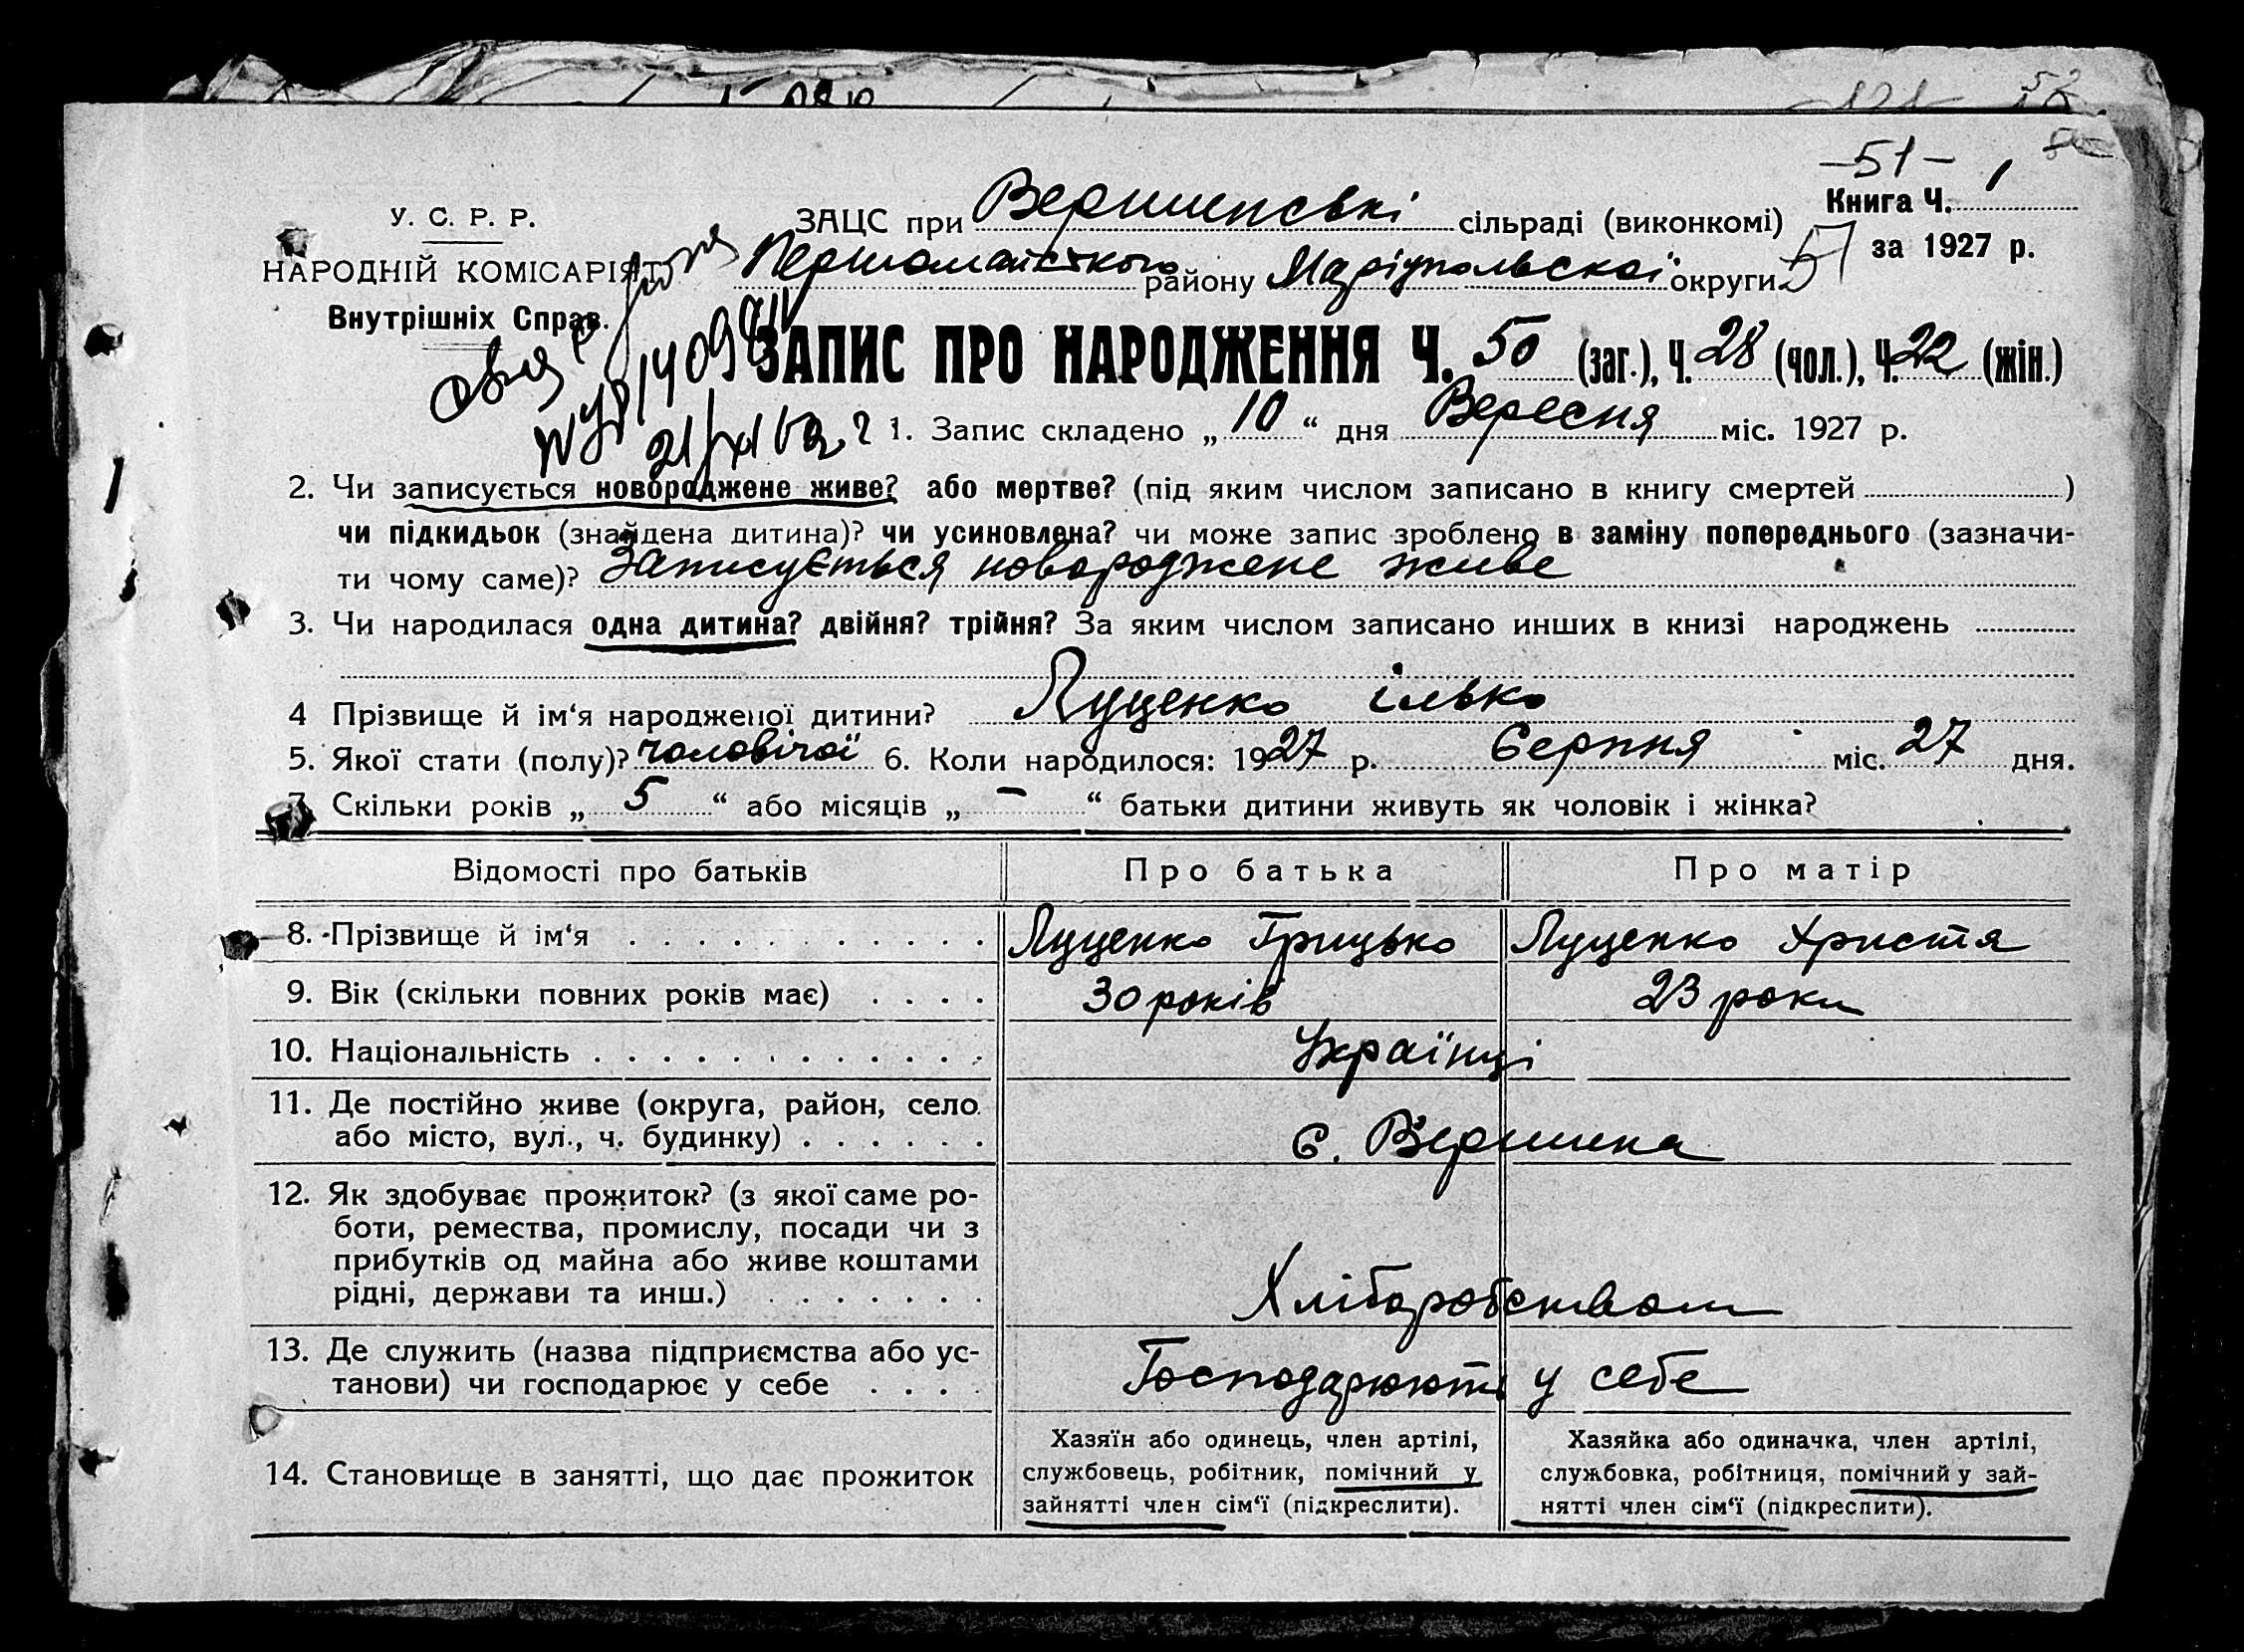 -51-
У. С. Р. Р. ЗАЦС при Вершинські сільраді (виконкомі) Книга Ч. 1
НАРОДНІЙ КОМІСАРІЯТ Першомайського району Маріупольської округи 51 за 1927 р.
Внутрішніх Справ.
ЗАПИС ПРО НАРОДЖЕННЯ Ч. 50 (заг.), Ч. 28 (чол.), Ч. 22 (жін.)
1. Запис складено „ 10 “ дня Вересня міс. 1927 р.
2. Чи записується новороджене живе? або мертве? (під яким числом записано в книгу смертей )
чи підкидьок (знайдена дитина)? чи усиновлена? чи може запис зроблено в заміну попереднього (зазначи-
ти чому саме)? Записується новороджене живе
3. Чи народилася одна дитина? двійня? трійня? За яким числом записано инших в книзі народжень
4 Прізвище й ім‘я народженої дитини? Луценко Ілько
5. Якої стати (полу)? чоловічої 6. Коли народилося: 1927 р. Серпня міс. 27 дня.
7. Скільки років „ 5 “ або місяців „ — “ батьки дитини живуть як чоловік і жінка?
Відомості про батьків Про батька Про матір
8. Прізвище й ім‘я Луценко Грицько Луценко Христя
9. Вік (скільки повних років має) 30 років 23 роки
10. Національність Українці
11. Де постійно живе (округа, район, село
або місто, вул., ч. будинку) с. Вершина
12. Як здобуває прожиток? (з якої саме ро-
боти, ремества, промислу, посади чи з
прибутків од майна або живе коштами
рідні, держави та инш.) Хліборобством
13. Де служить (назва підприємства або ус-
танови) чи господарює у себе Господарюють у себе
14. Становище в занятті, що дає прожиток
Хазяїн або одинець, член артілі,
службовець, робітник, помічний у
зайнятті член сім‘ї (підкреслити).
Хазяйка або одиначка, член артілі,
службовка, робітниця, помічний у зай-
нятті член сім‘ї (підкреслити).